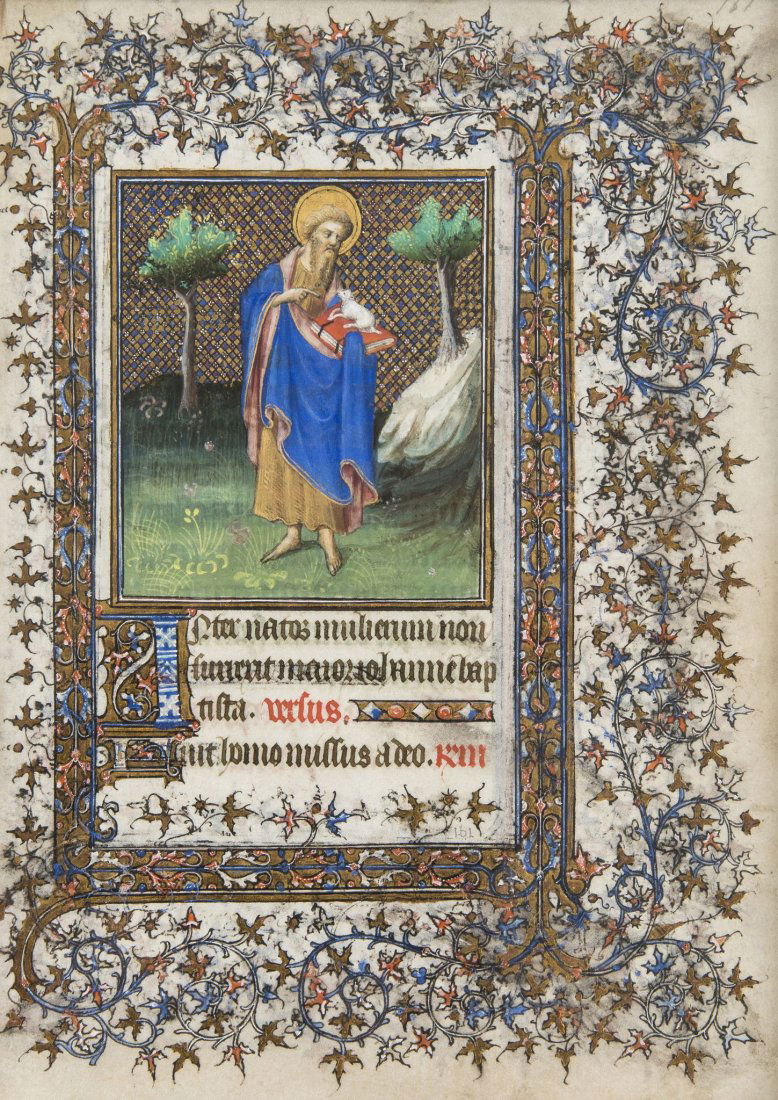 INter natos mulierum non
surrexit maior iohanne bap
tista. versus.
Fuit homo missus a deo.
161